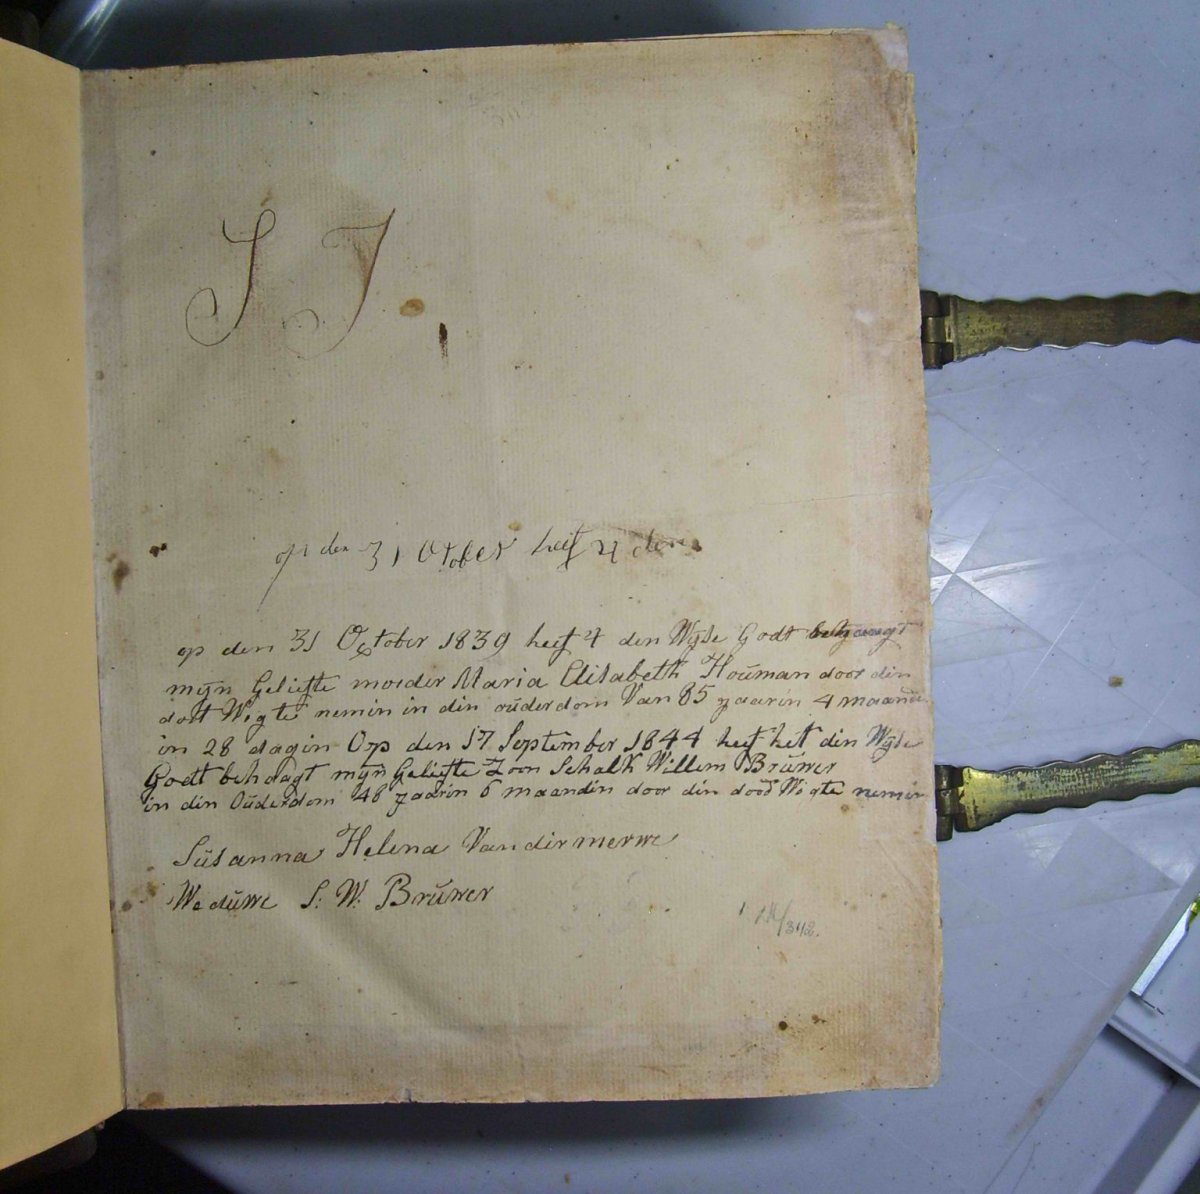 S J
op den 31 Otober heeft
op den 31 October 1839 heeft 4 den Wÿse Godt behaagt
mÿn Geliefte moeder Maria Elisabeth Hoŭman door din
dort Wigte nemin in din oŭderdom Van 85 yaarin 4 maande
in 28 dagin Op den 17 September 1844 heeft hett din Wÿse
Godt behaagt mÿn Geliefte Zoon Schalk Willem Brŭwer
in din Oŭderdom 48 yaarin 6 maandin door din dood Wigte nemin
Sŭsanna Helena Van dir merwe
Wedŭwe S: W: Brŭwer
/342.